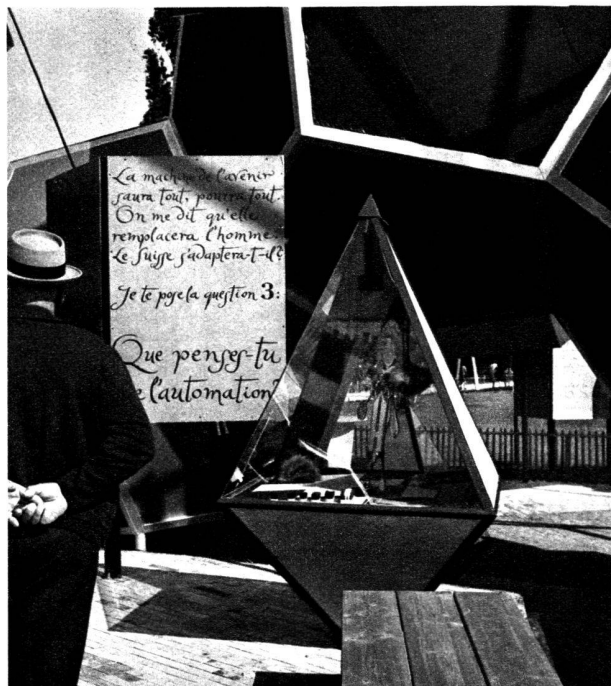 La machine de l'avenir
saura tout, pourra tout.
On me dit qu'elle
remplacera l'homme.
Le Suisse s'adaptera-t-il?
Je te pose la question 3:
Que penses-tu
l'automation?